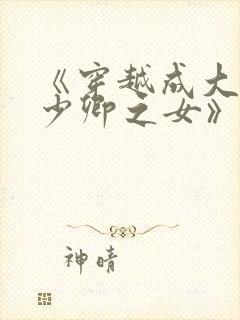 《穿越成大
少卿之女》
神晴